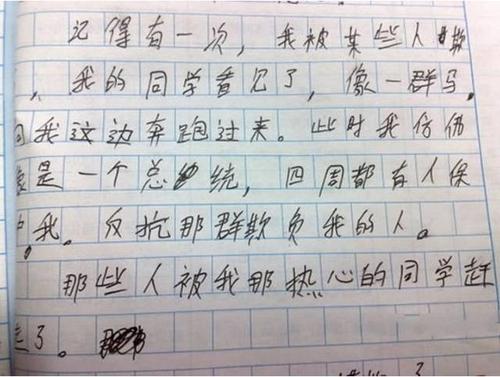 记得有一次，我被某些人欺
，我的同学看见了，像一群马，
向我这边奔跑过来。此时我仿佛
象是一个总统，四周都有人保
护我。反抗那群欺负我的人。
那些人被我那热心的同学赶
走了。